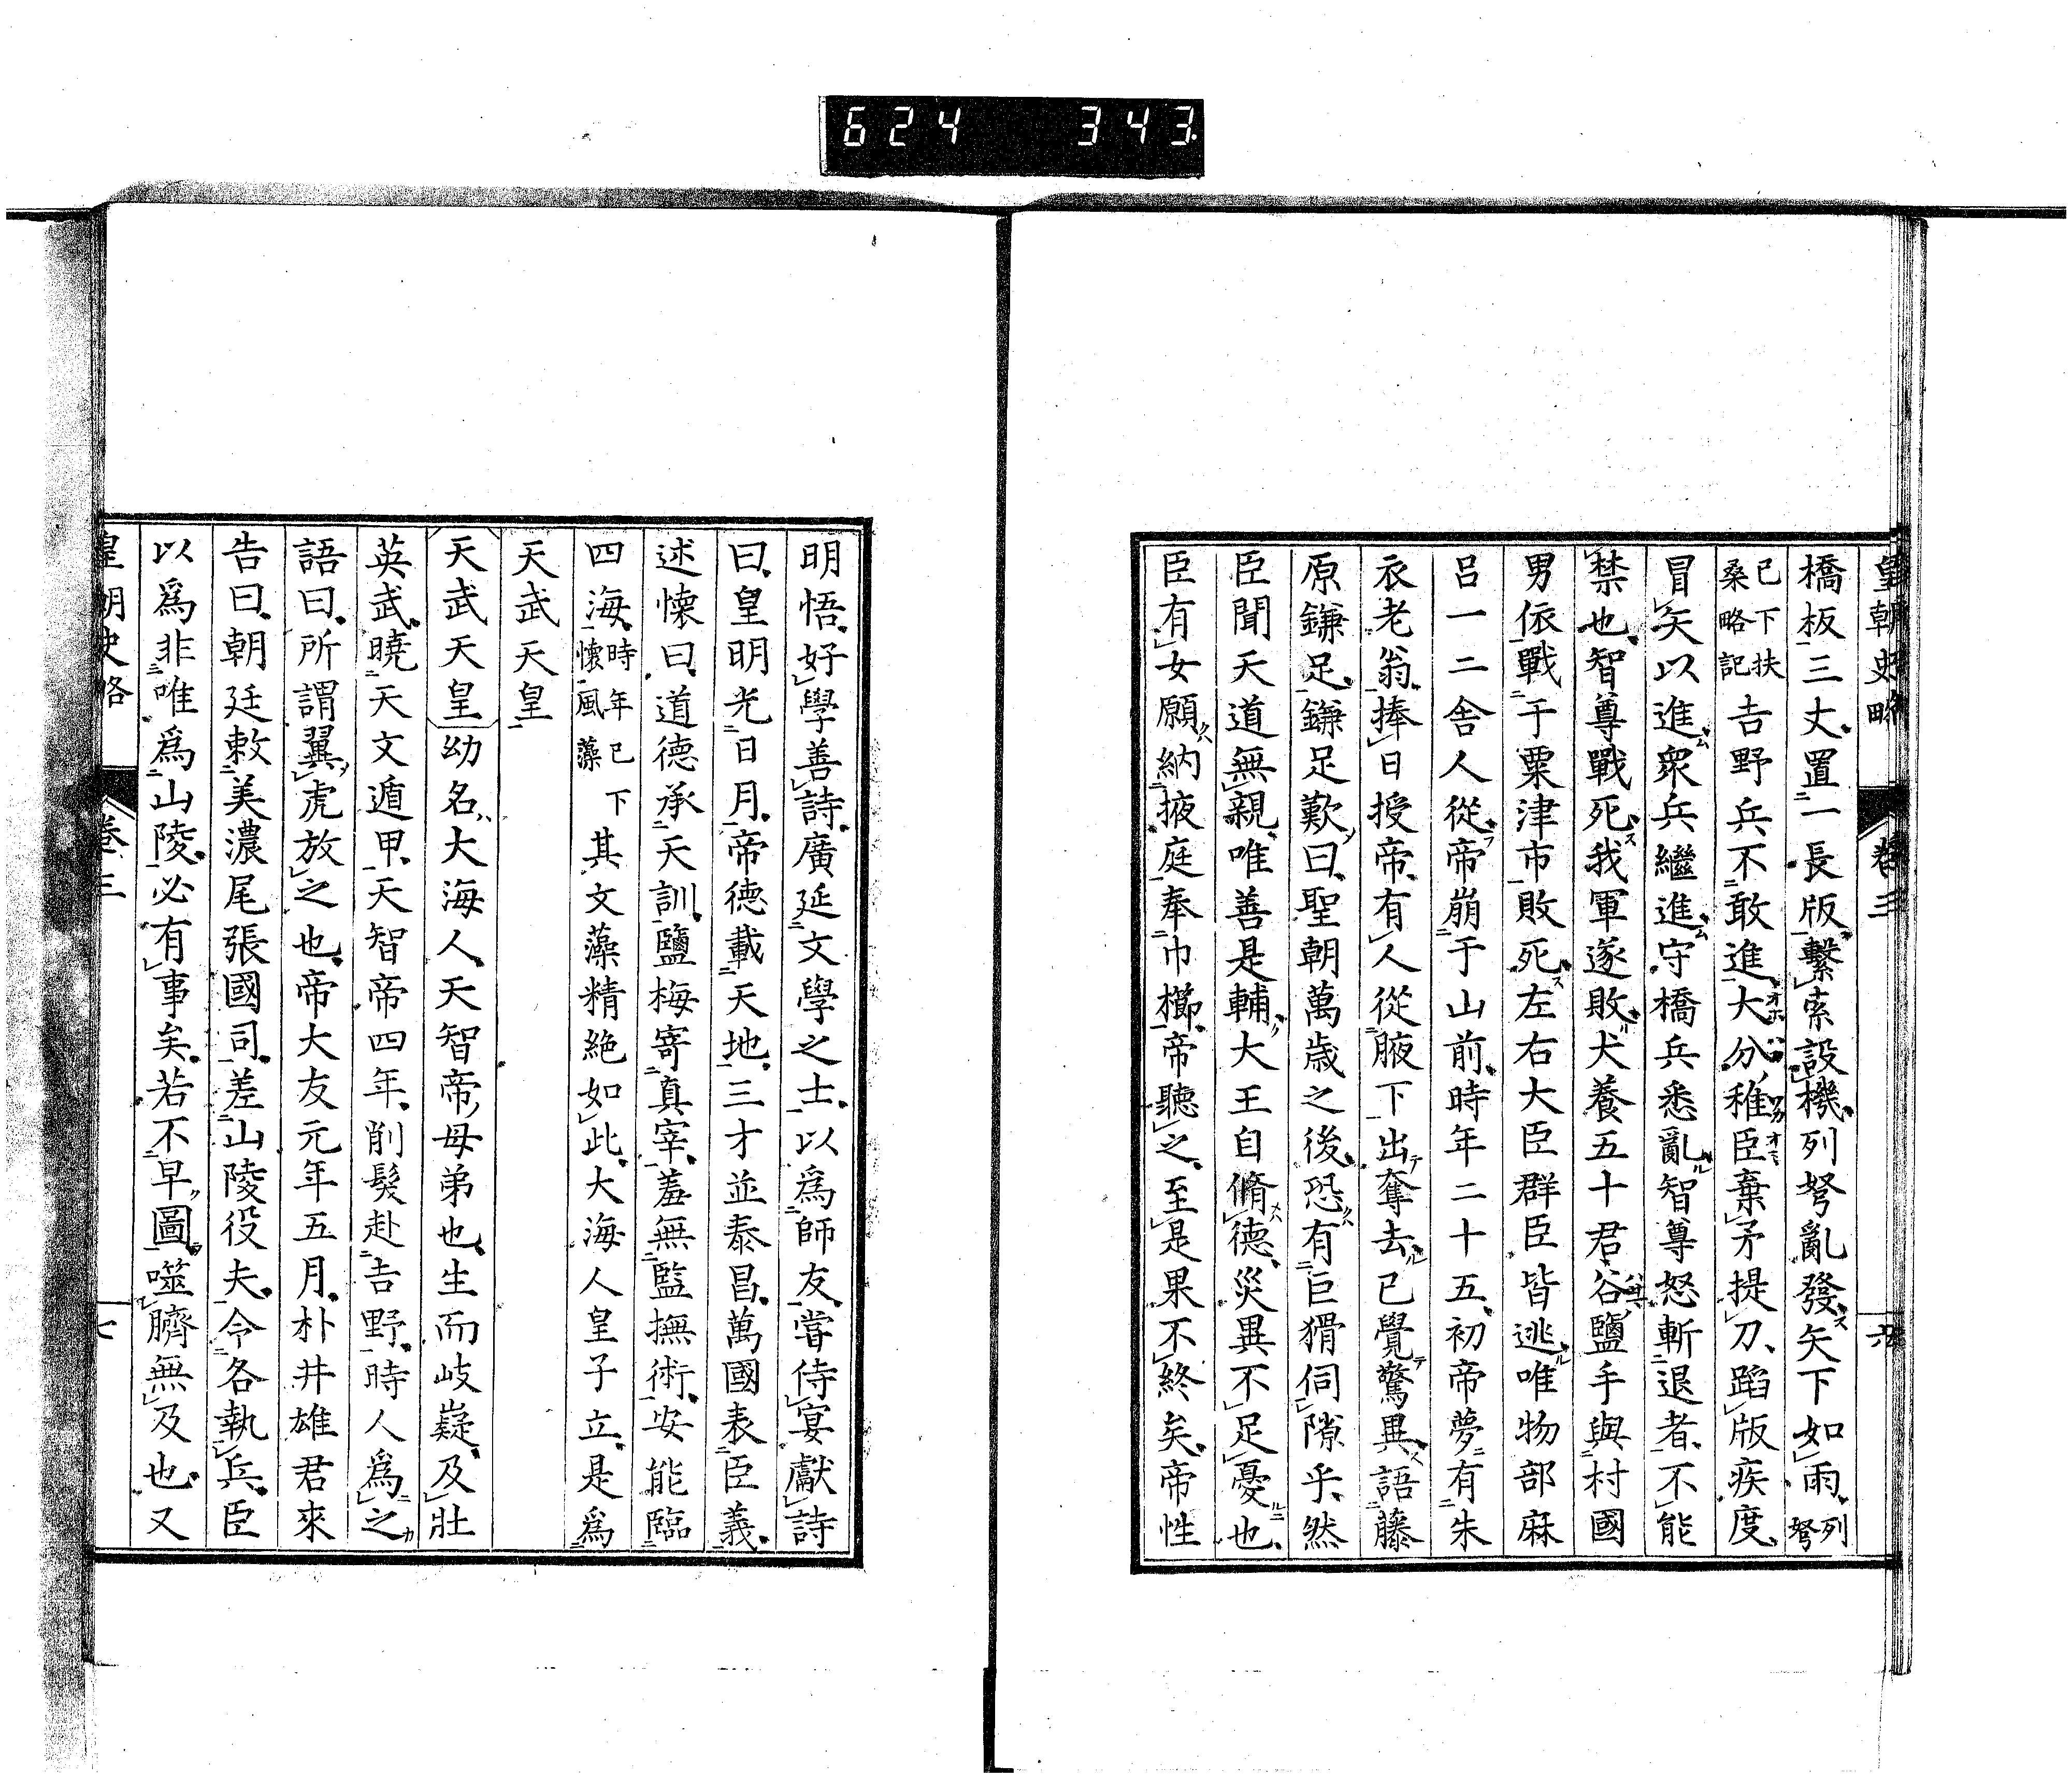 624 343
皇朝史略 卷三 六
橋板三丈置一長版繫索設機列弩亂發矢下如雨列弩
已下扶桑略記吉野兵不敢進大分稚臣棄矛提刀蹈版疾度
冒矢以進衆兵繼進守橋兵悉亂智尊怒斬退者不能
禁也智尊戰死我軍遂敗犬養五十君谷鹽手與村國
男依戰于粟津市敗死左右大臣群臣皆逃唯物部麻
呂一二舍人從帝崩于山前時年二十五初帝夢有朱
衣老翁捧日授帝有人從腋下出奪去已覺驚異語藤
原鎌足鎌足歎曰聖朝萬歲之後恐有巨猾伺隙乎然
臣聞天道無親唯善是輔大王自脩德災異不足憂也
臣有女願納掖庭奉巾櫛帝聽之至是果不終矣帝性
明悟好學善詩廣延文學之士以爲師友嘗侍宴獻詩
曰皇明光日月帝德載天地三才並泰昌萬國表臣義
述懷曰道德承天訓鹽梅寄真宰羞無監撫術安能臨
四海時年已下懷風藻其文藻精絶如此大海人皇子立是爲
天武天皇
天武天皇幼名大海人天智帝母弟也生而岐嶷及壯
英武曉天文遁甲天智帝四年削髮赴吉野時人爲之
語曰所謂翼虎放之也帝大友元年五月朴井雄君來
告曰朝廷敕美濃尾張國司差山陵役夫令各執兵臣
以爲非唯爲山陵必有事矣若不早圖噬臍無及也又
皇朝史略 卷三 七